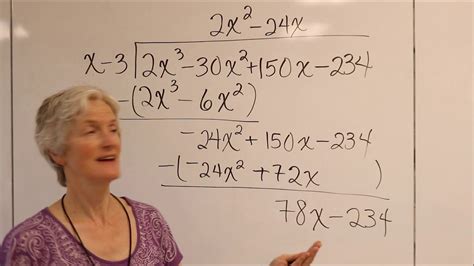 2x²-24x
x-3 2x³-30x²+150x-234
-(2x³-6x²)
-24x²+150x-234
-(-24x²+72x )
78x-234